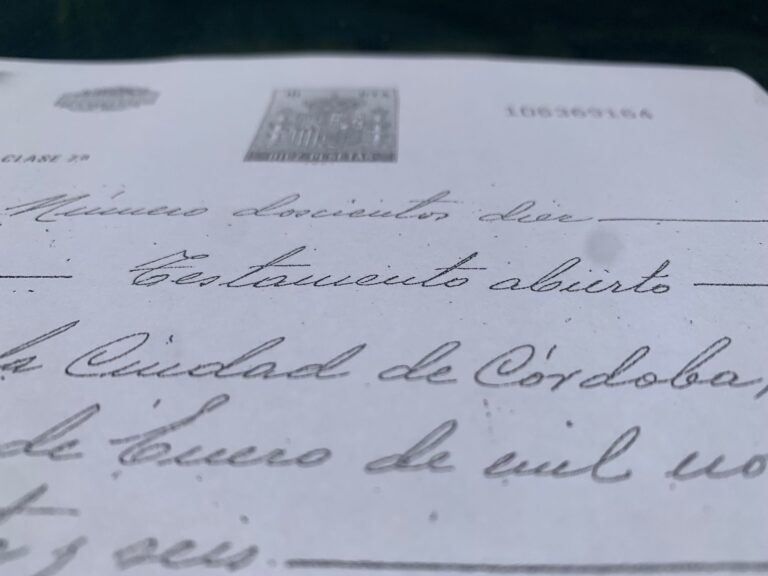 106369164
CLASE 7ª
Número doscientos diez
Testamento abierto
la Ciudad de Córdoba,
de Enero de mil no
y seis.